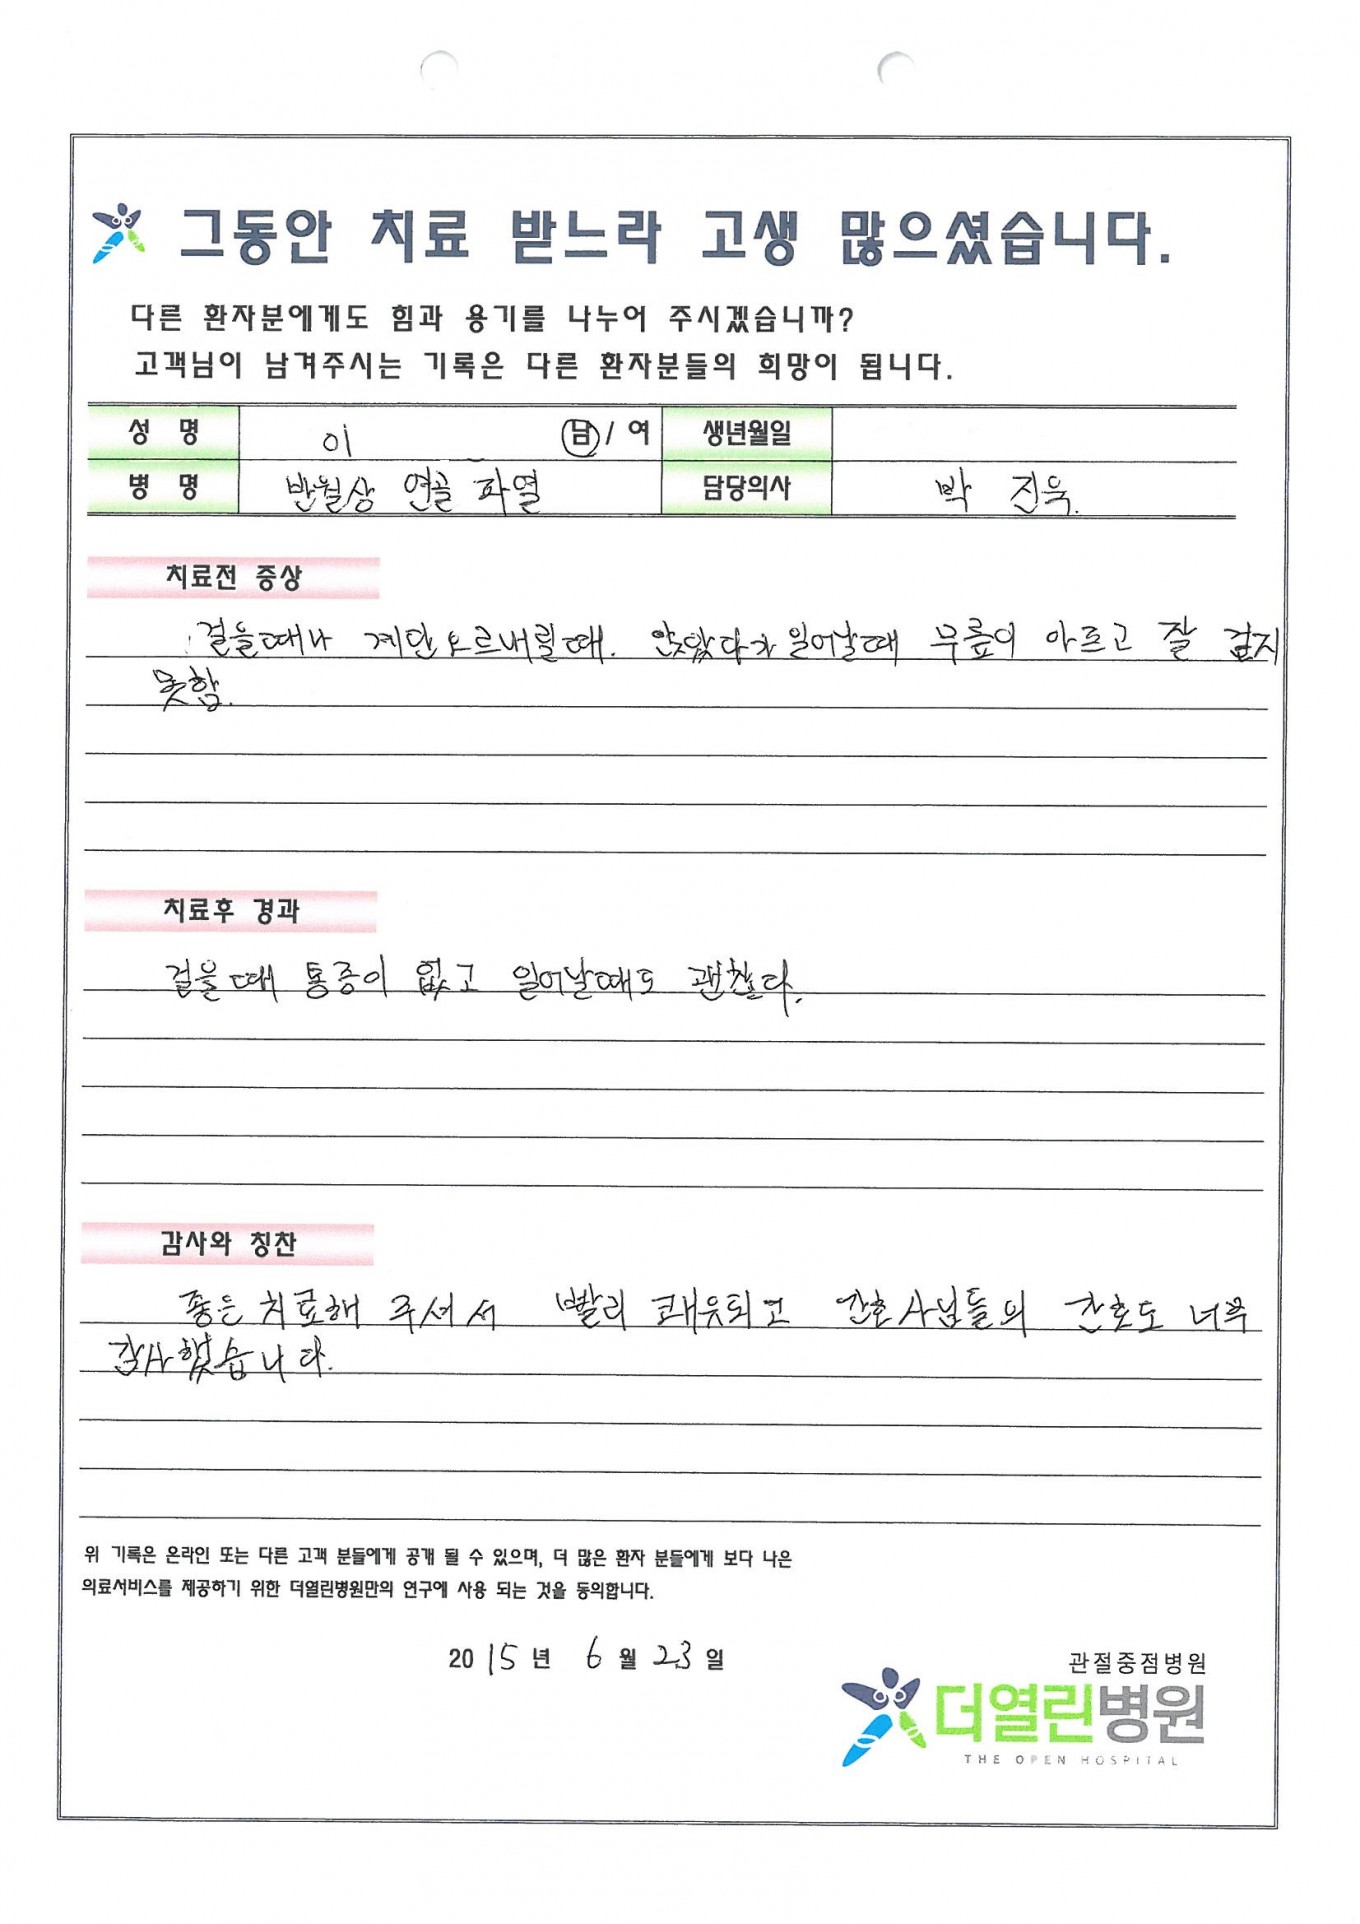 그동안 치료 받느라 고생 많으셨습니다.
다른 환자분에게도 힘과 용기를 나누어 주시겠습니까?
고객님이 남겨주시는 기록은 다른 환자분들의 희망이 됩니다.
성 명 이 남 / 여 생년월일
병 명 반월상 연골 파열 담당의사 박 진욱.
치료전 증상
걸을때나 계단오르내릴때. 앉았다가 일어날때 무릎이 아프고 잘 걷지
못함.
치료후 경과
걸을때 통증이 없고 일어날때도 괜찮다.
감사와 칭찬
좋은 치료해 주셔서 빨리 쾌유되고 간호사님들의 간호도 너무
감사했습니다.
위 기록은 온라인 또는 다른 고객 분들에게 공개 될 수 있으며, 더 많은 환자 분들에게 보다 나은
의료서비스를 제공하기 위한 더열린병원만의 연구에 사용 되는 것을 동의합니다.
2015년 6월 23일
관절중점병원
더열린병원
THE OPEN HOSPITAL